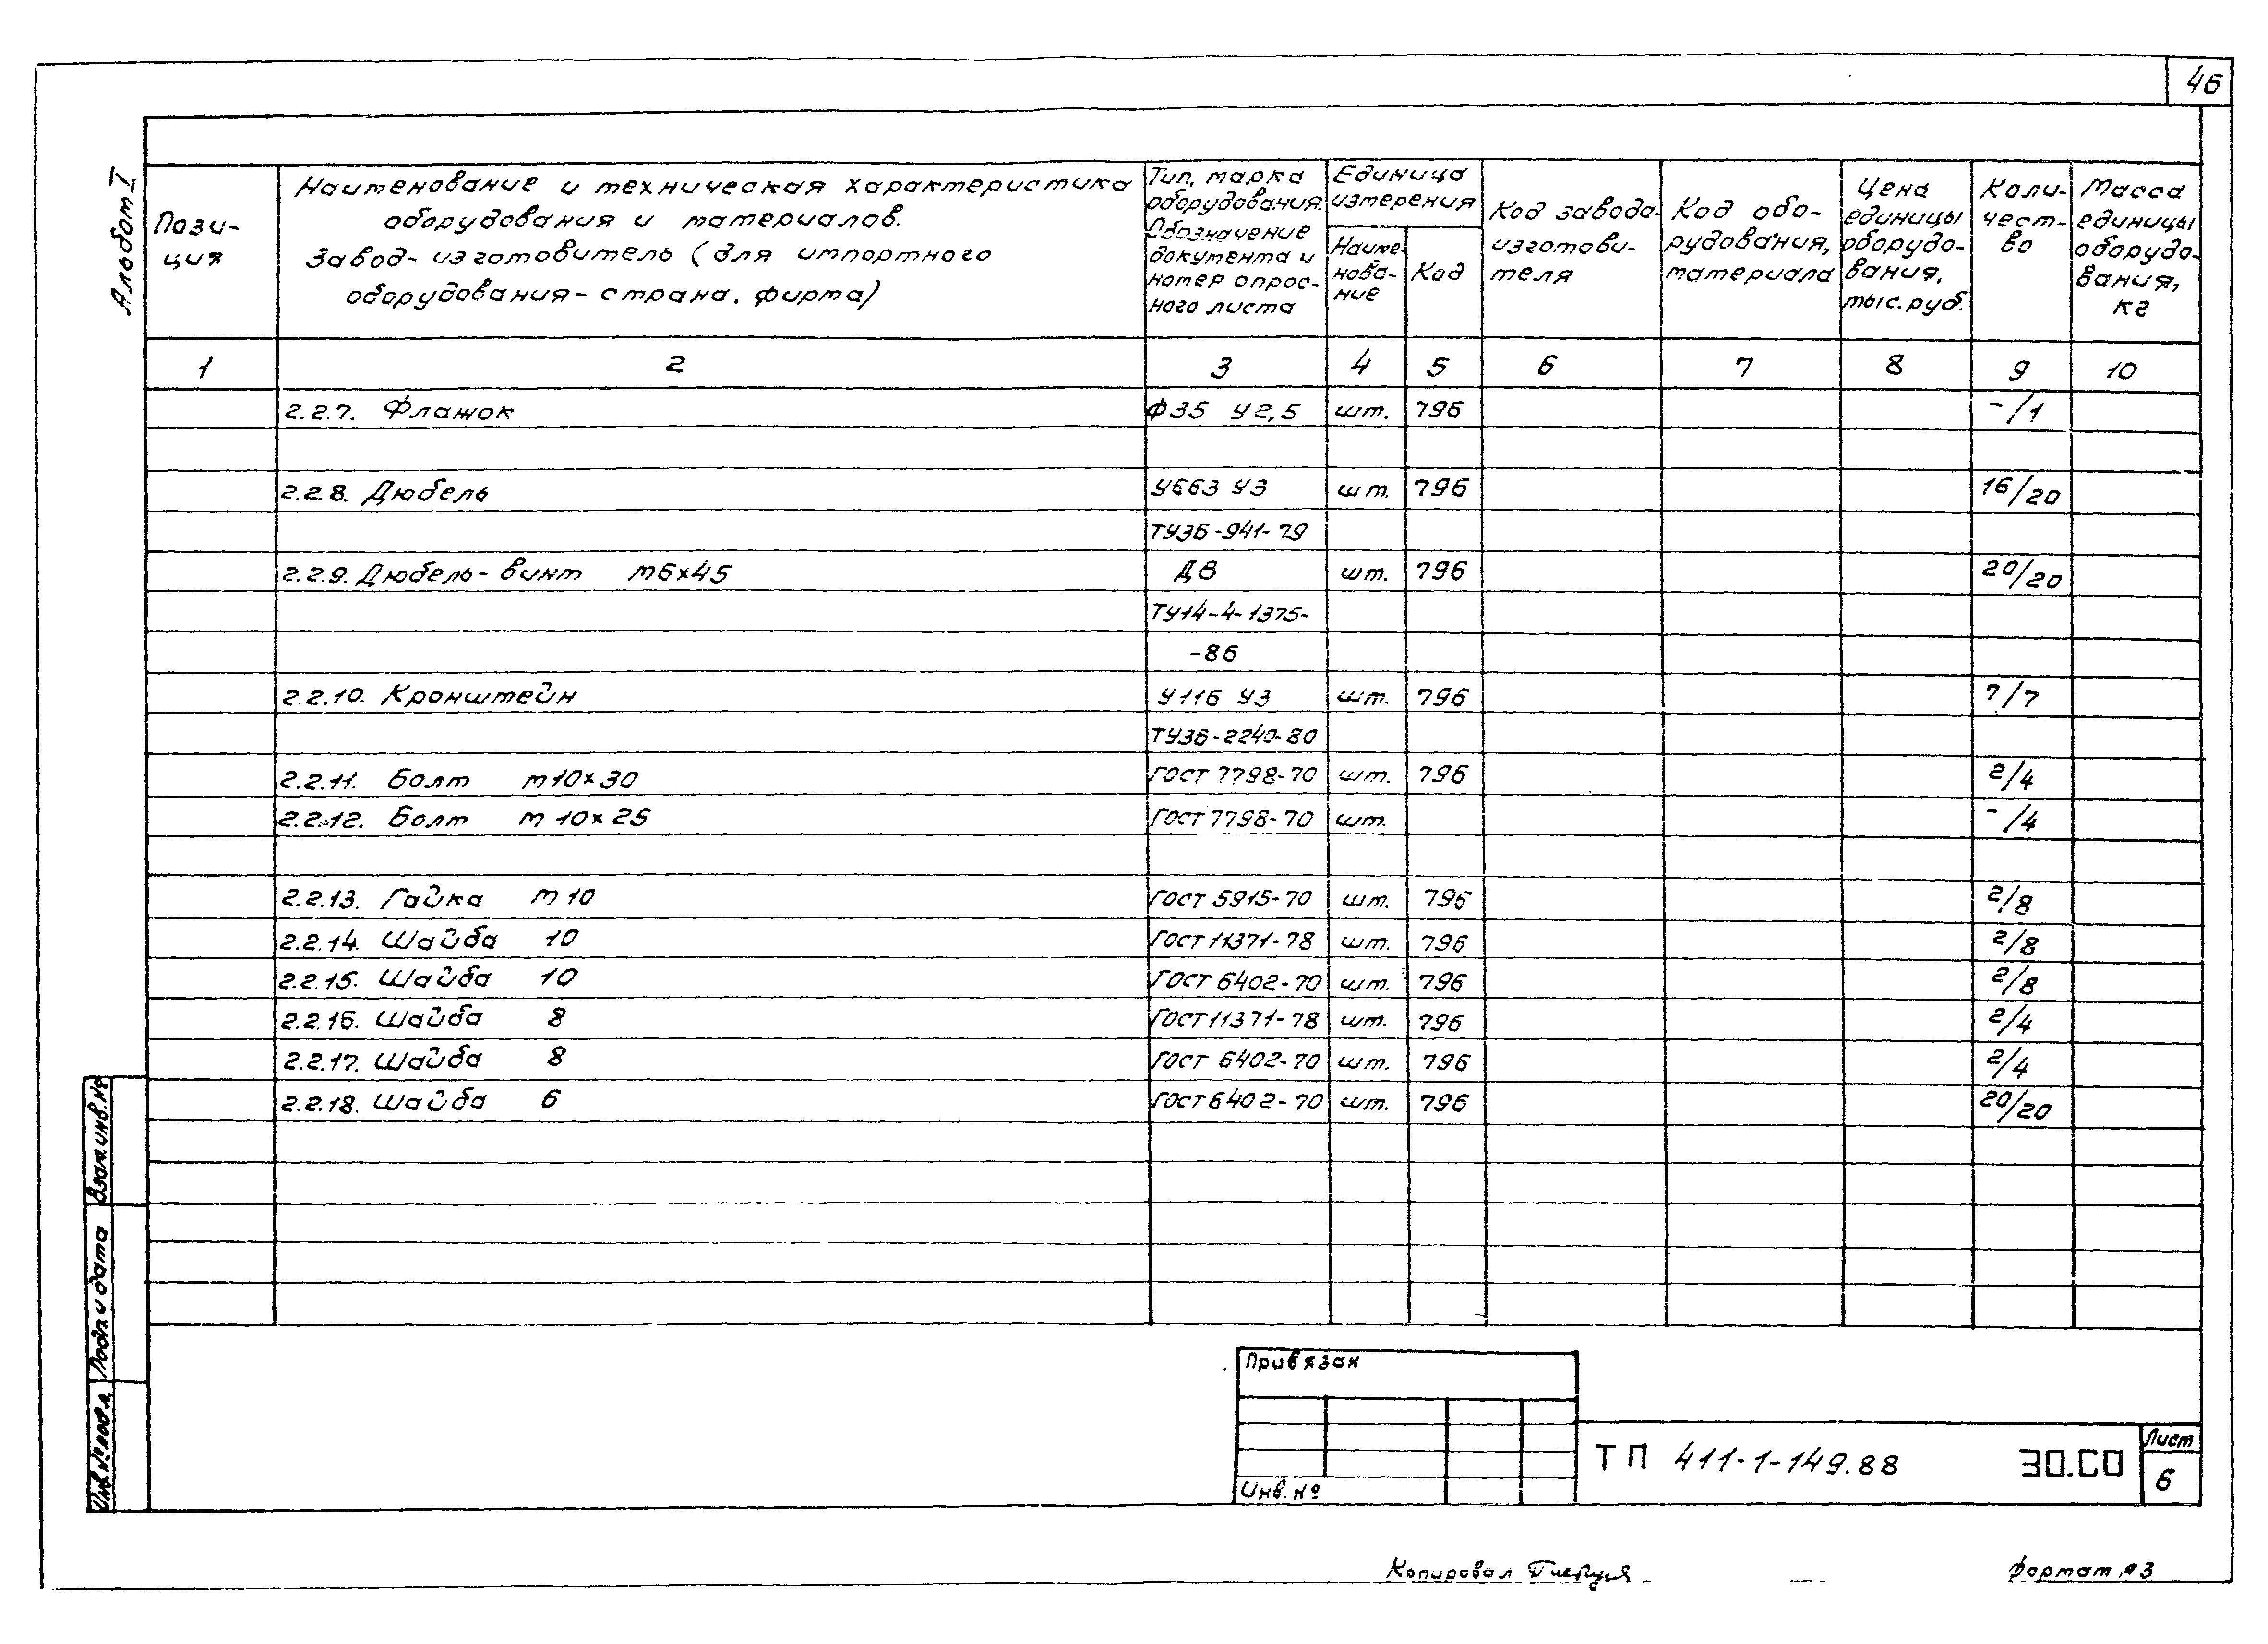 46
Альбом I
Пози-
ция
Наименование и техническая характеристика
оборудования и материалов.
Завод-изготовитель (для импортного
оборудования-страна, фирма)
Тип, марка
оборудования.
Обозначение
документа и
номер опрос-
ного листа
Единица
измерения
Наиме-
нова-
ние
Код
Код завода-
изготови-
теля
Код обо-
рудования,
материала
Цена
единицы
оборудо-
вания,
тыс.руб.
Коли-
чест-
во
Масса
единицы
оборудо-
вания,
кг
1 2 3 4 5 6 7 8 9 10
2.2.7. Флажок Ф35 У2,5 шт. 796 -/1
2.2.8. Дюбель У663 У3 шт. 796 16/20
ТУ36-941-79
2.2.9. Дюбель-винт М6х45 ДВ шт. 796 20/20
ТУ14-4-1375-
-86
2.2.10. Кронштейн У116 У3 шт. 796 7/7
ТУ36-2240-80
2.2.11. Болт М10х30 ГОСТ 7798-70 шт. 796 2/4
2.2.12. Болт М10х25 ГОСТ 7798-70 шт. -/4
2.2.13. Гайка М10 ГОСТ 5915-70 шт. 796 2/8
2.2.14. Шайба 10 ГОСТ 11371-78 шт. 796 2/8
2.2.15. Шайба 10 ГОСТ 6402-70 шт. 796 2/8
2.2.16. Шайба 8 ГОСТ 11371-78 шт. 796 2/4
2.2.17. Шайба 8 ГОСТ 6402-70 шт. 796 2/4
2.2.18. Шайба 6 ГОСТ 6402-70 шт. 796 20/20
Взам.инв.№
Подп и дата
Инв.№ подл.
Привязан
Инв.№
ТП 411-1-149.88 ЭО.СО
Лист
6
Копировал
Формат А3